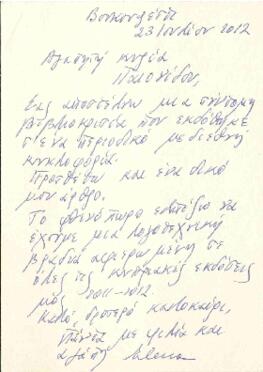 Βουκουρέστι
23 Ιουλίου 2012
Αγαπητή κυρία
Παιονίδου,
Σας αποστέλλω μια σύντομη
βιβλιοκρισία που εκδόθηκε
σ' ένα περιοδικό με διεθνή
κυκλοφορία.
Προσθέτω και ένα δικό
μου άρθρο.
Το φθινόπωρο ελπίζω να
έχουμε μια λογοτεχνική
βραδιά αφιερωμένη σε
όλες τις κυπριακές εκδόσεις
μας 2011-2012.
Καλό, δροσερό καλοκαίρι,
Πάντα με φιλία και
αγάπη